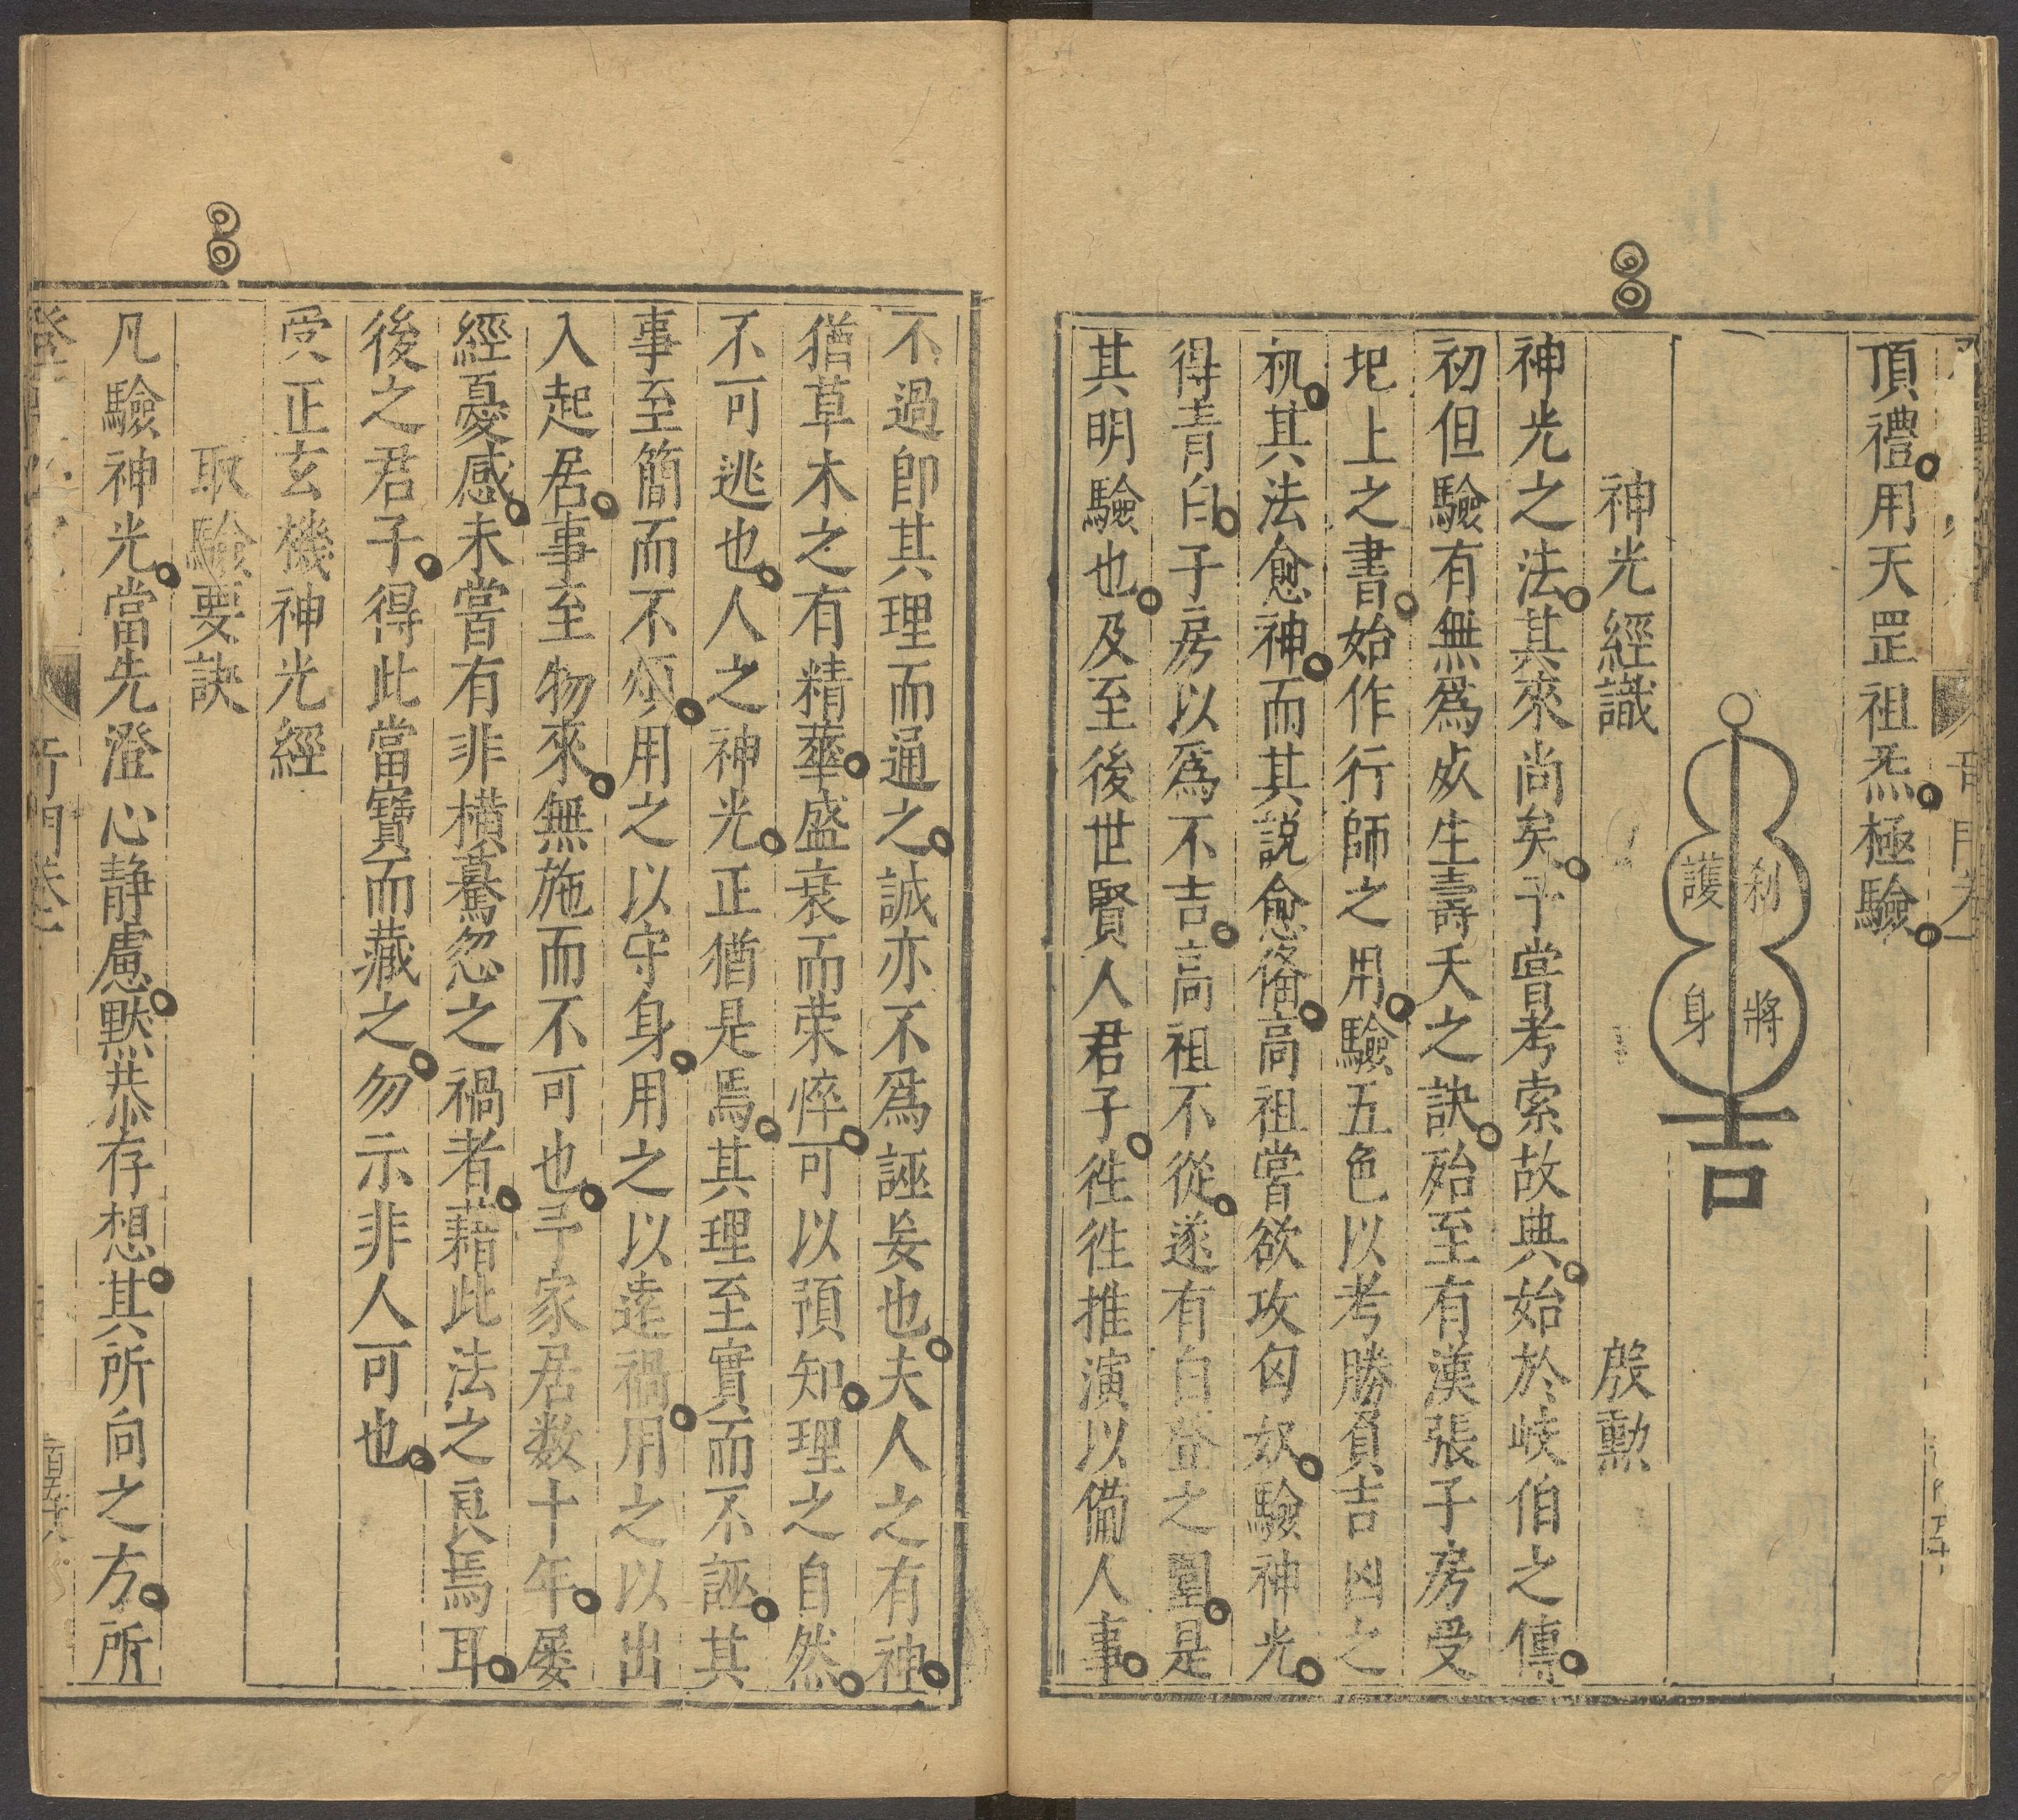 頂禮用天罡祖炁極驗
刹
將
護
身
吉
神光經識　殷勳
神光之法其來尚矣予嘗考索故典始於岐伯之傳
初但驗有無爲死生壽夭之訣殆至有漢張子房受
圯上之書始作行師之用驗五色以考勝負吉凶之
𥘉其法愈神而其説愈俻高祖嘗欲攻匈奴驗神光
得青白子房以爲不吉高祖不從遂有白登之圍是
其明驗也及至後世賢人君子徃徃推演以備人事
不過即其理而通之誠亦不爲誣妄也夫人之有神
猶草木之有精華盛衰而荣悴可以預知理之自然
不可逃也人之神光正猶是焉其理至實而不誣其
事至簡而不煩用之以守身用之以遠禍用之以出
入起居事至物來無施而不可也予家居数十年屡
經憂感未嘗有非横驀忽之禍者藉此法之良焉耳
後之君子得此當寶而藏之勿示非人可也
靈正玄機神光經
取驗要訣
凡驗神光當先澄心静慮黙恭存想其所向之方所